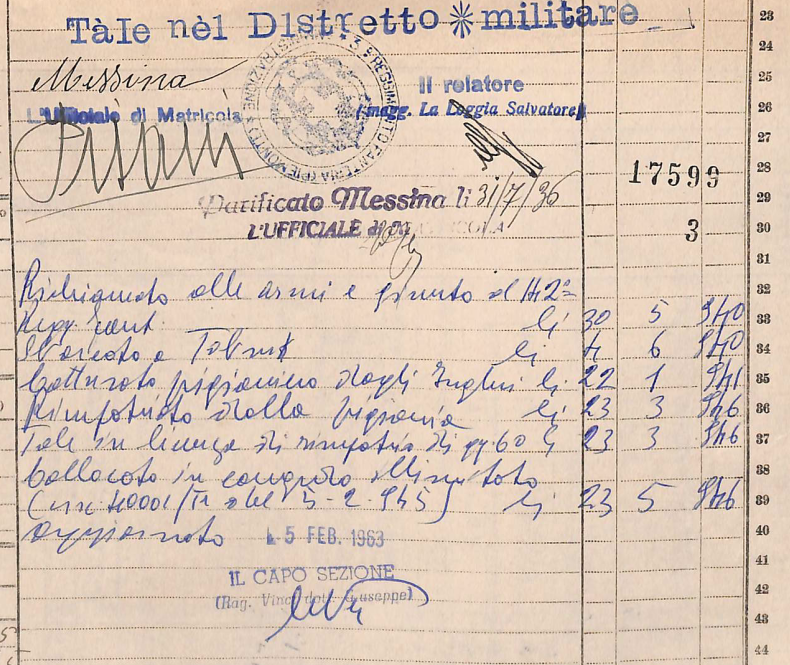 Tàle nèl Distretto * militare
23
24
Messina
Il relatore
25
L'Ufficiale di Matricola
(magg. La Loggia Salvatore)
26
27
17599
28
Parificato Messina li 31/7/36
29
L'UFFICIALE di MATRICOLA
3
30
31
Richiamato alle armi e giunto al 42°
32
Regg. fant. li 30 5 940
33
Sbarcato a Tobruk li 4 6 940
34
Catturato prigioniero dagli Inglesi li 22 1 941
35
Rimpatriato dalla prigionia li 23 3 946
36
Tale in licenza di rimpatrio di gg. 60 li 23 3 946
37
Collocato in congedo illimitato
38
(circ 40001/ del 5-2-945) li 23 5 946
39
Aggiornato 5 FEB. 1963
40
41
IL CAPO SEZIONE
(Rag. Vinci dott. Giuseppe)
42
43
44